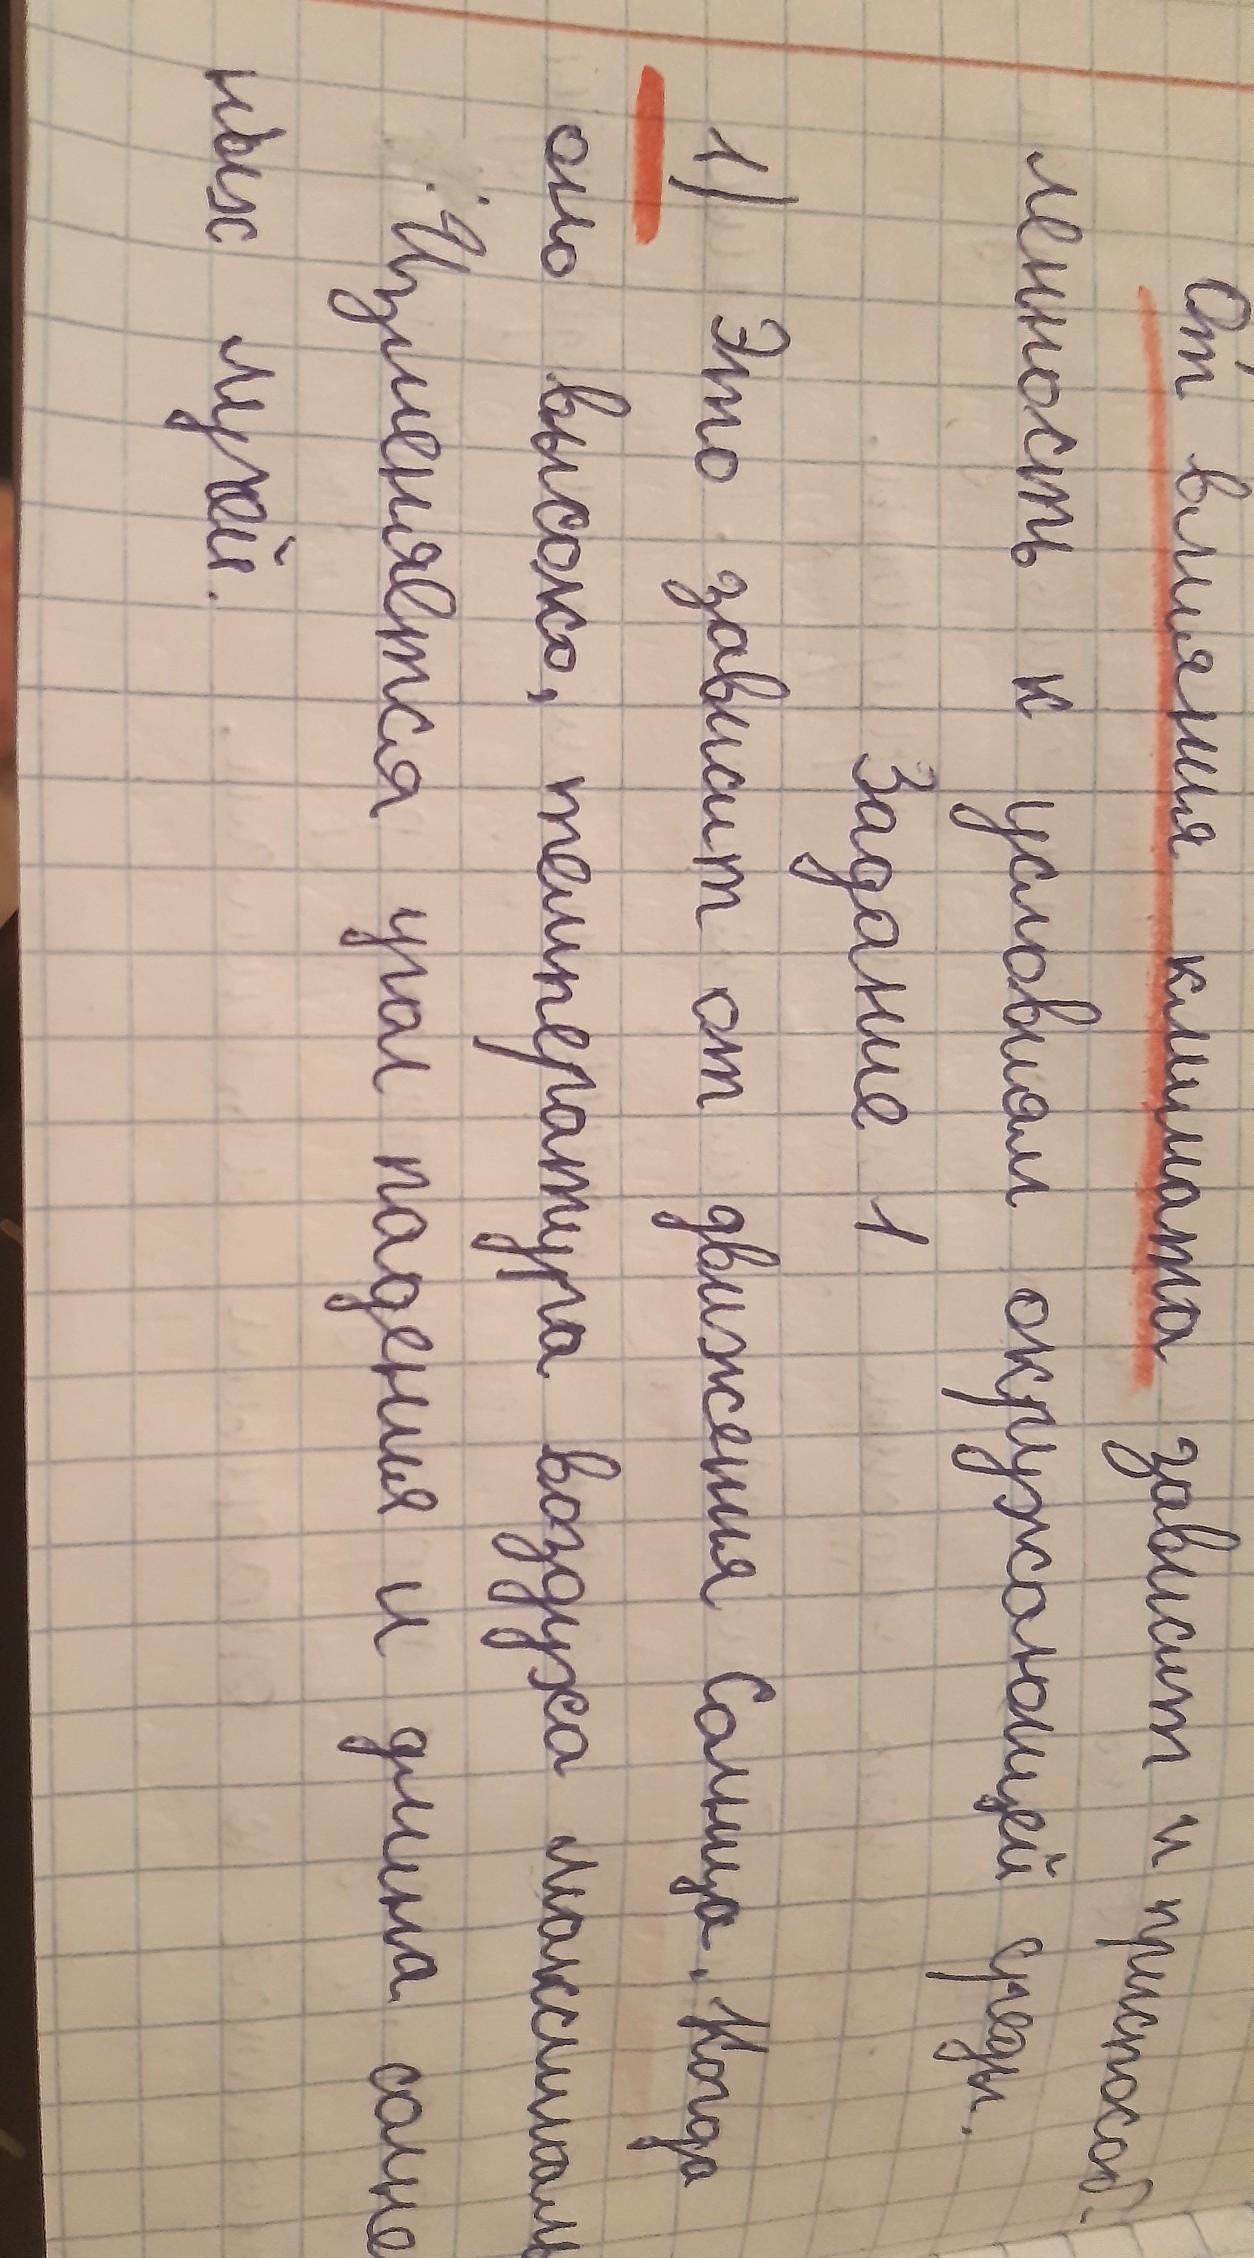 От влияния климата зависит и приспособ-
ленность к условиям окружающей среды.
Задание 1
1) Это зависит от движения Солнца. Когда
оно высоко, температура воздуха максималь
Изменяется угол падения и длина солне
ных лучей.